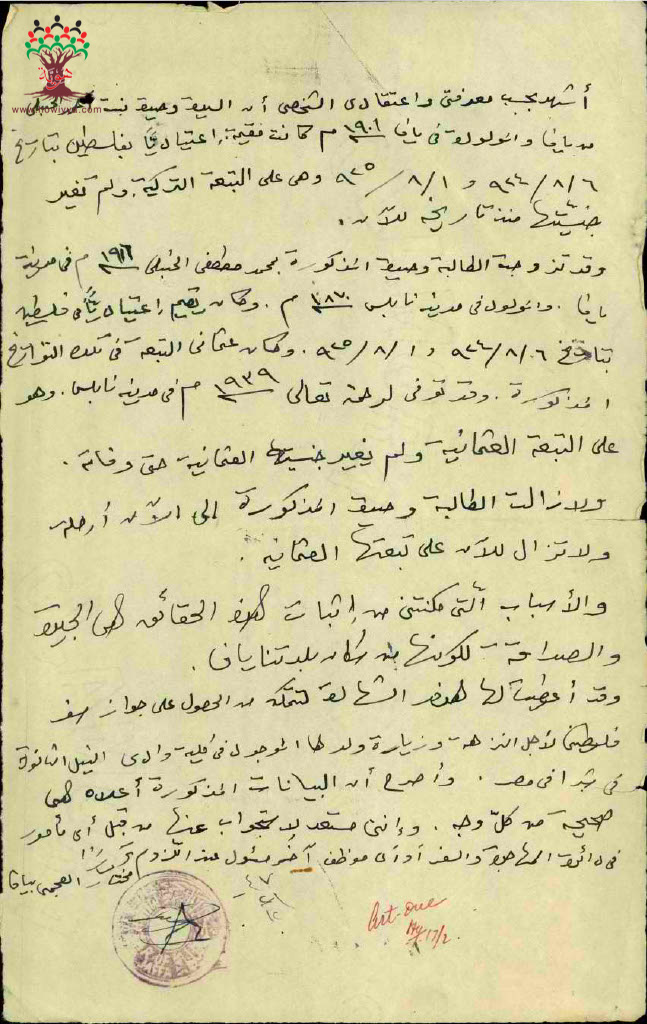 هوية
www.howiyya.com
أشهد بحسب معرفتي واعتقادي الشخصي أن السيدة وصيفة بنت
من يافا والمولودة في يافا ١٩٠٦ م كانت مقيمة اعتياديًا بفلسطين بتاريخ
٩٢٤/٨/٦ و ٩٢٥/٨/١ وهي على التبعة التركية ولم تغير
جنسيتها منذ تاريخه للآن.
وقد تزوجت الطالبة وصيفة المذكورة بمحمد مصطفى الحنبلي م في مدينة
يافا . والمولود في مدينة نابلس ١٨٧٠ م . وكان يقيم اعتياديًا في فلسطين
بتاريخ ٩٢٤/٨/٦ و ٩٢٥/٨/١ . وكان عثماني التبعة في تلك التواريخ
المذكورة . وقد توفى لرحمة تعالى ١٩٣٩ م في مدينة نابلس . وهو
على التبعة العثمانية ولم يغير جنسيته العثمانية حتى وفاته .
ولا زالت الطالبة وصيفة المذكورة إلى الآن أرملة
ولا تزال للآن على تبعتها العثمانية .
والأسباب التي مكنتني من إثبات هذه الحقائق هي الجيرة
والصداقة لكونها من سكان بلدتنا يافا .
وقد أعطيت لها هذه الشهادة لتتمكن من الحصول على جواز سفر
فلسطيني لأجل النزهة وزيارة ولدها الموجود في كلية وادي النيل الثانوية
في شبرا في مصر . وأصرح أن البيانات المذكورة أعلاه هي
صحيحة من كل وجه . وإنني مستعد للاستجواب عنها من قبل أي مأمور
في دائرة المهاجرة والسفر أو أي موظف آخر مسئول عند اللزوم
مختار العجمي بيافا
17/2